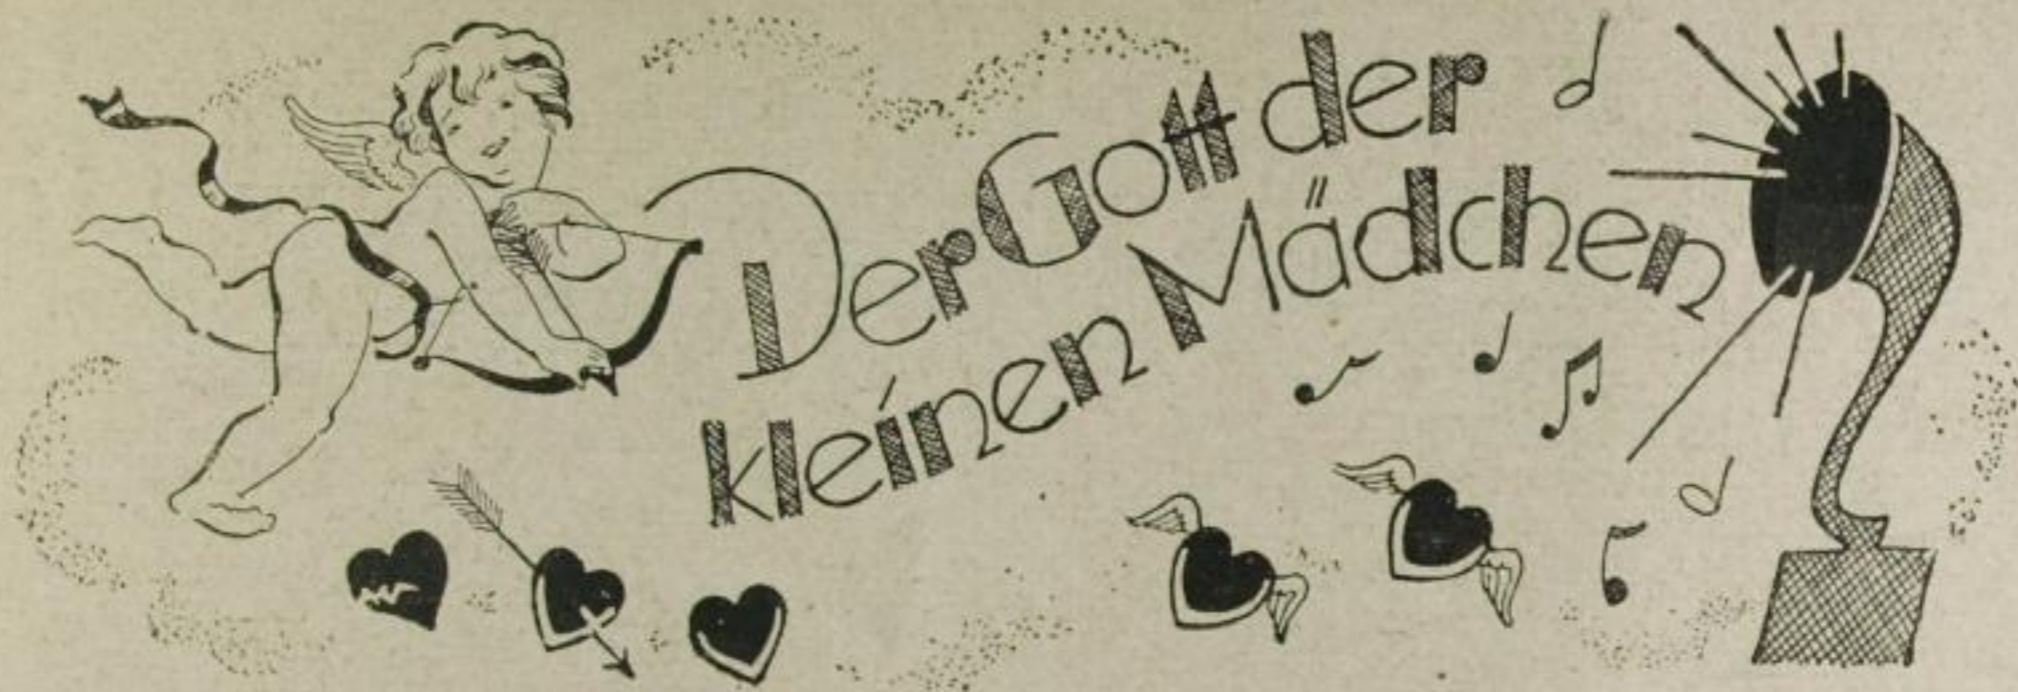 Der Gott der
kleinen Mädchen